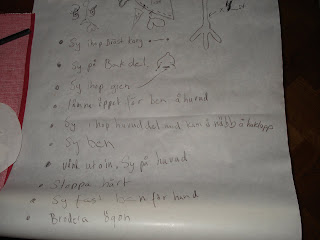 Sy ihop bröst kring
Sy på Buk del
Sy ihop igen
Lämna öppet för ben å huvud
Sy ihop huvud del med kam å näbb å haklapp
Sy ben
vänd ut o in, sy på huvud
Stoppa hårt
Sy fast ben för hand
Brodera ögon